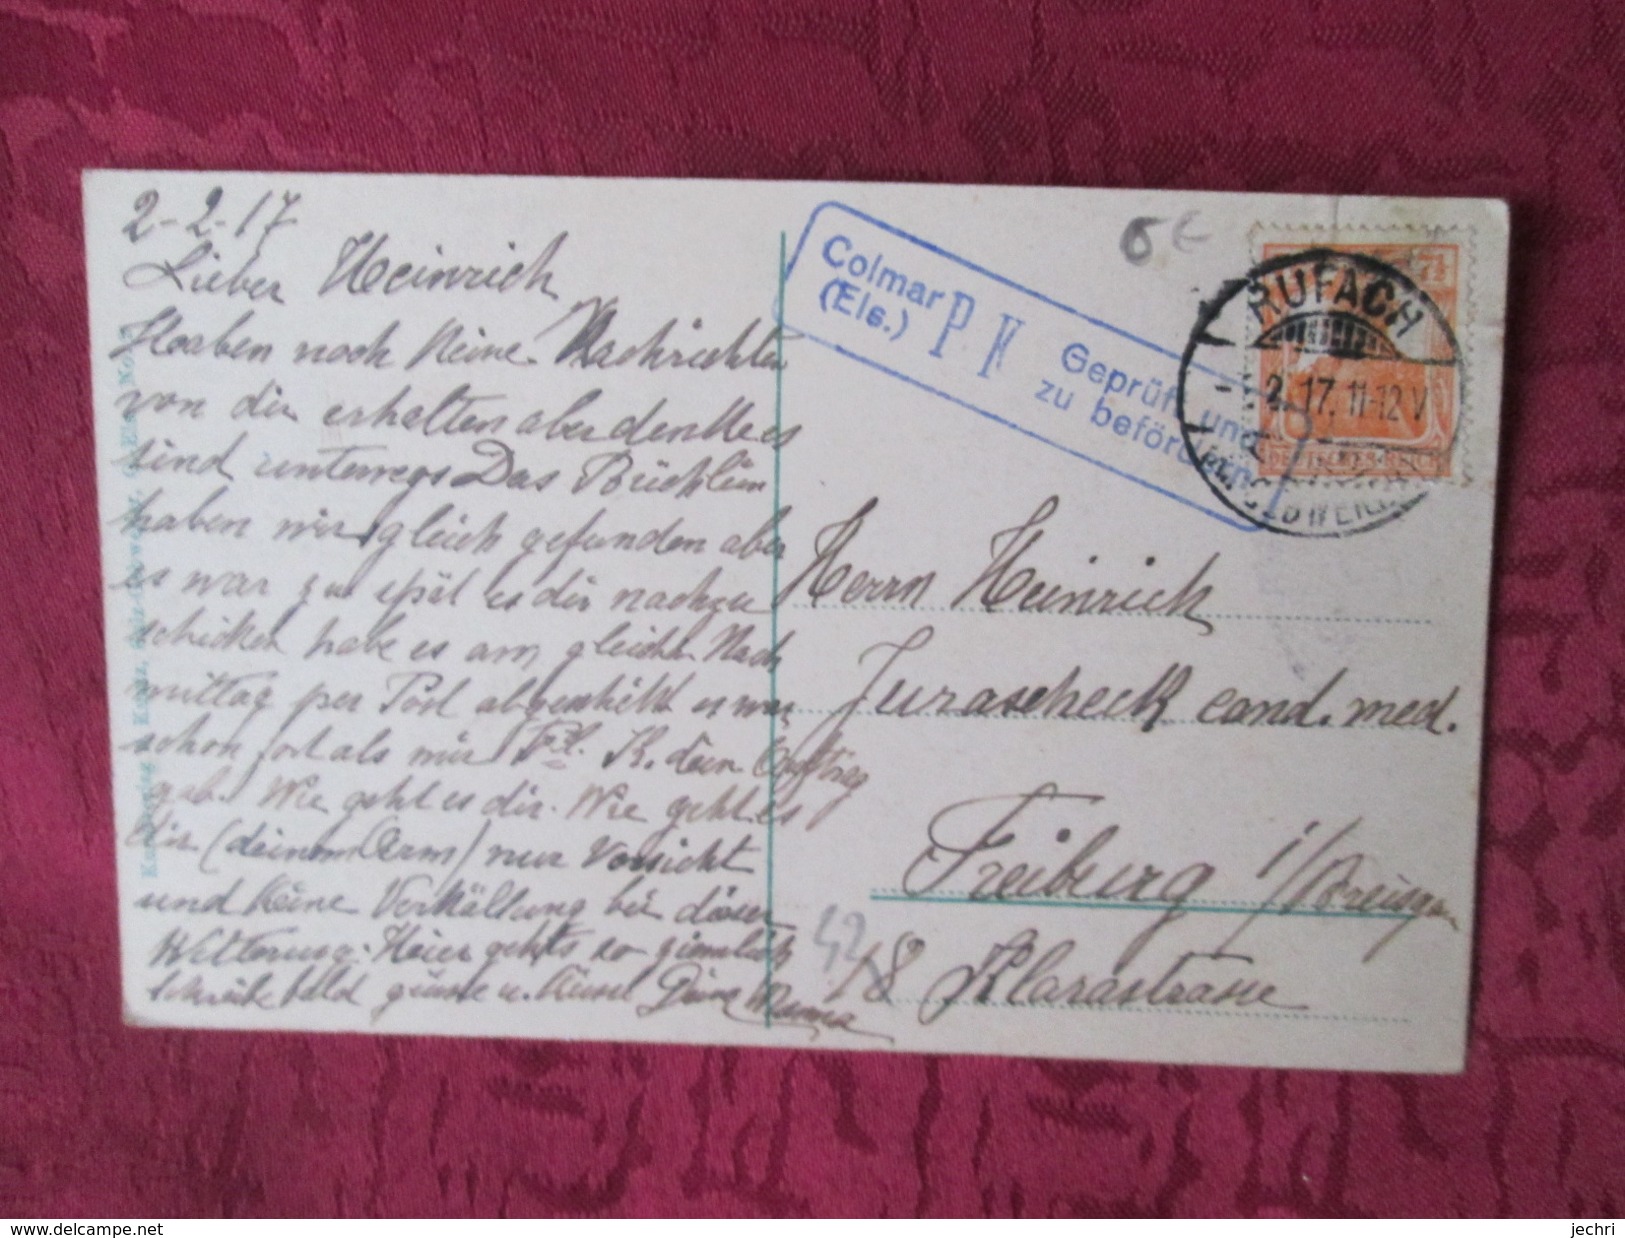 2-2-17
Lieber Heinrich
Haben noch Keine Nachrichten
von dir erhalten aber denke es
sind unterwegs Das Büchlein
haben wir gleich gefunden aber
es war zu spät es dir nachzu
schicken habe es am gleichen Nach
mittag per Post abgeschikt es war
schon fort als mir Frl. K. dein Auftrag
gab. Wie geht es dir. Wie geht es
dir (deinem Arm) nur Vorsicht
und Keine Verkältung bei dieser
Witterung. Heier gehts so ziemlich
schreibe bald grüsse u. Küsse Deine Mama
Colmar
(Els.)
P K
Geprüft und
zu befördern
6 €
RUFACH
2. 17. 11-12 V
DEUTSCHES REICH
7½
Herrn Heinrich
Jurascheck cand. med.
Freiburg i/Breisgau
42
18 Klarastrasse
www.delcampe.net
jechri